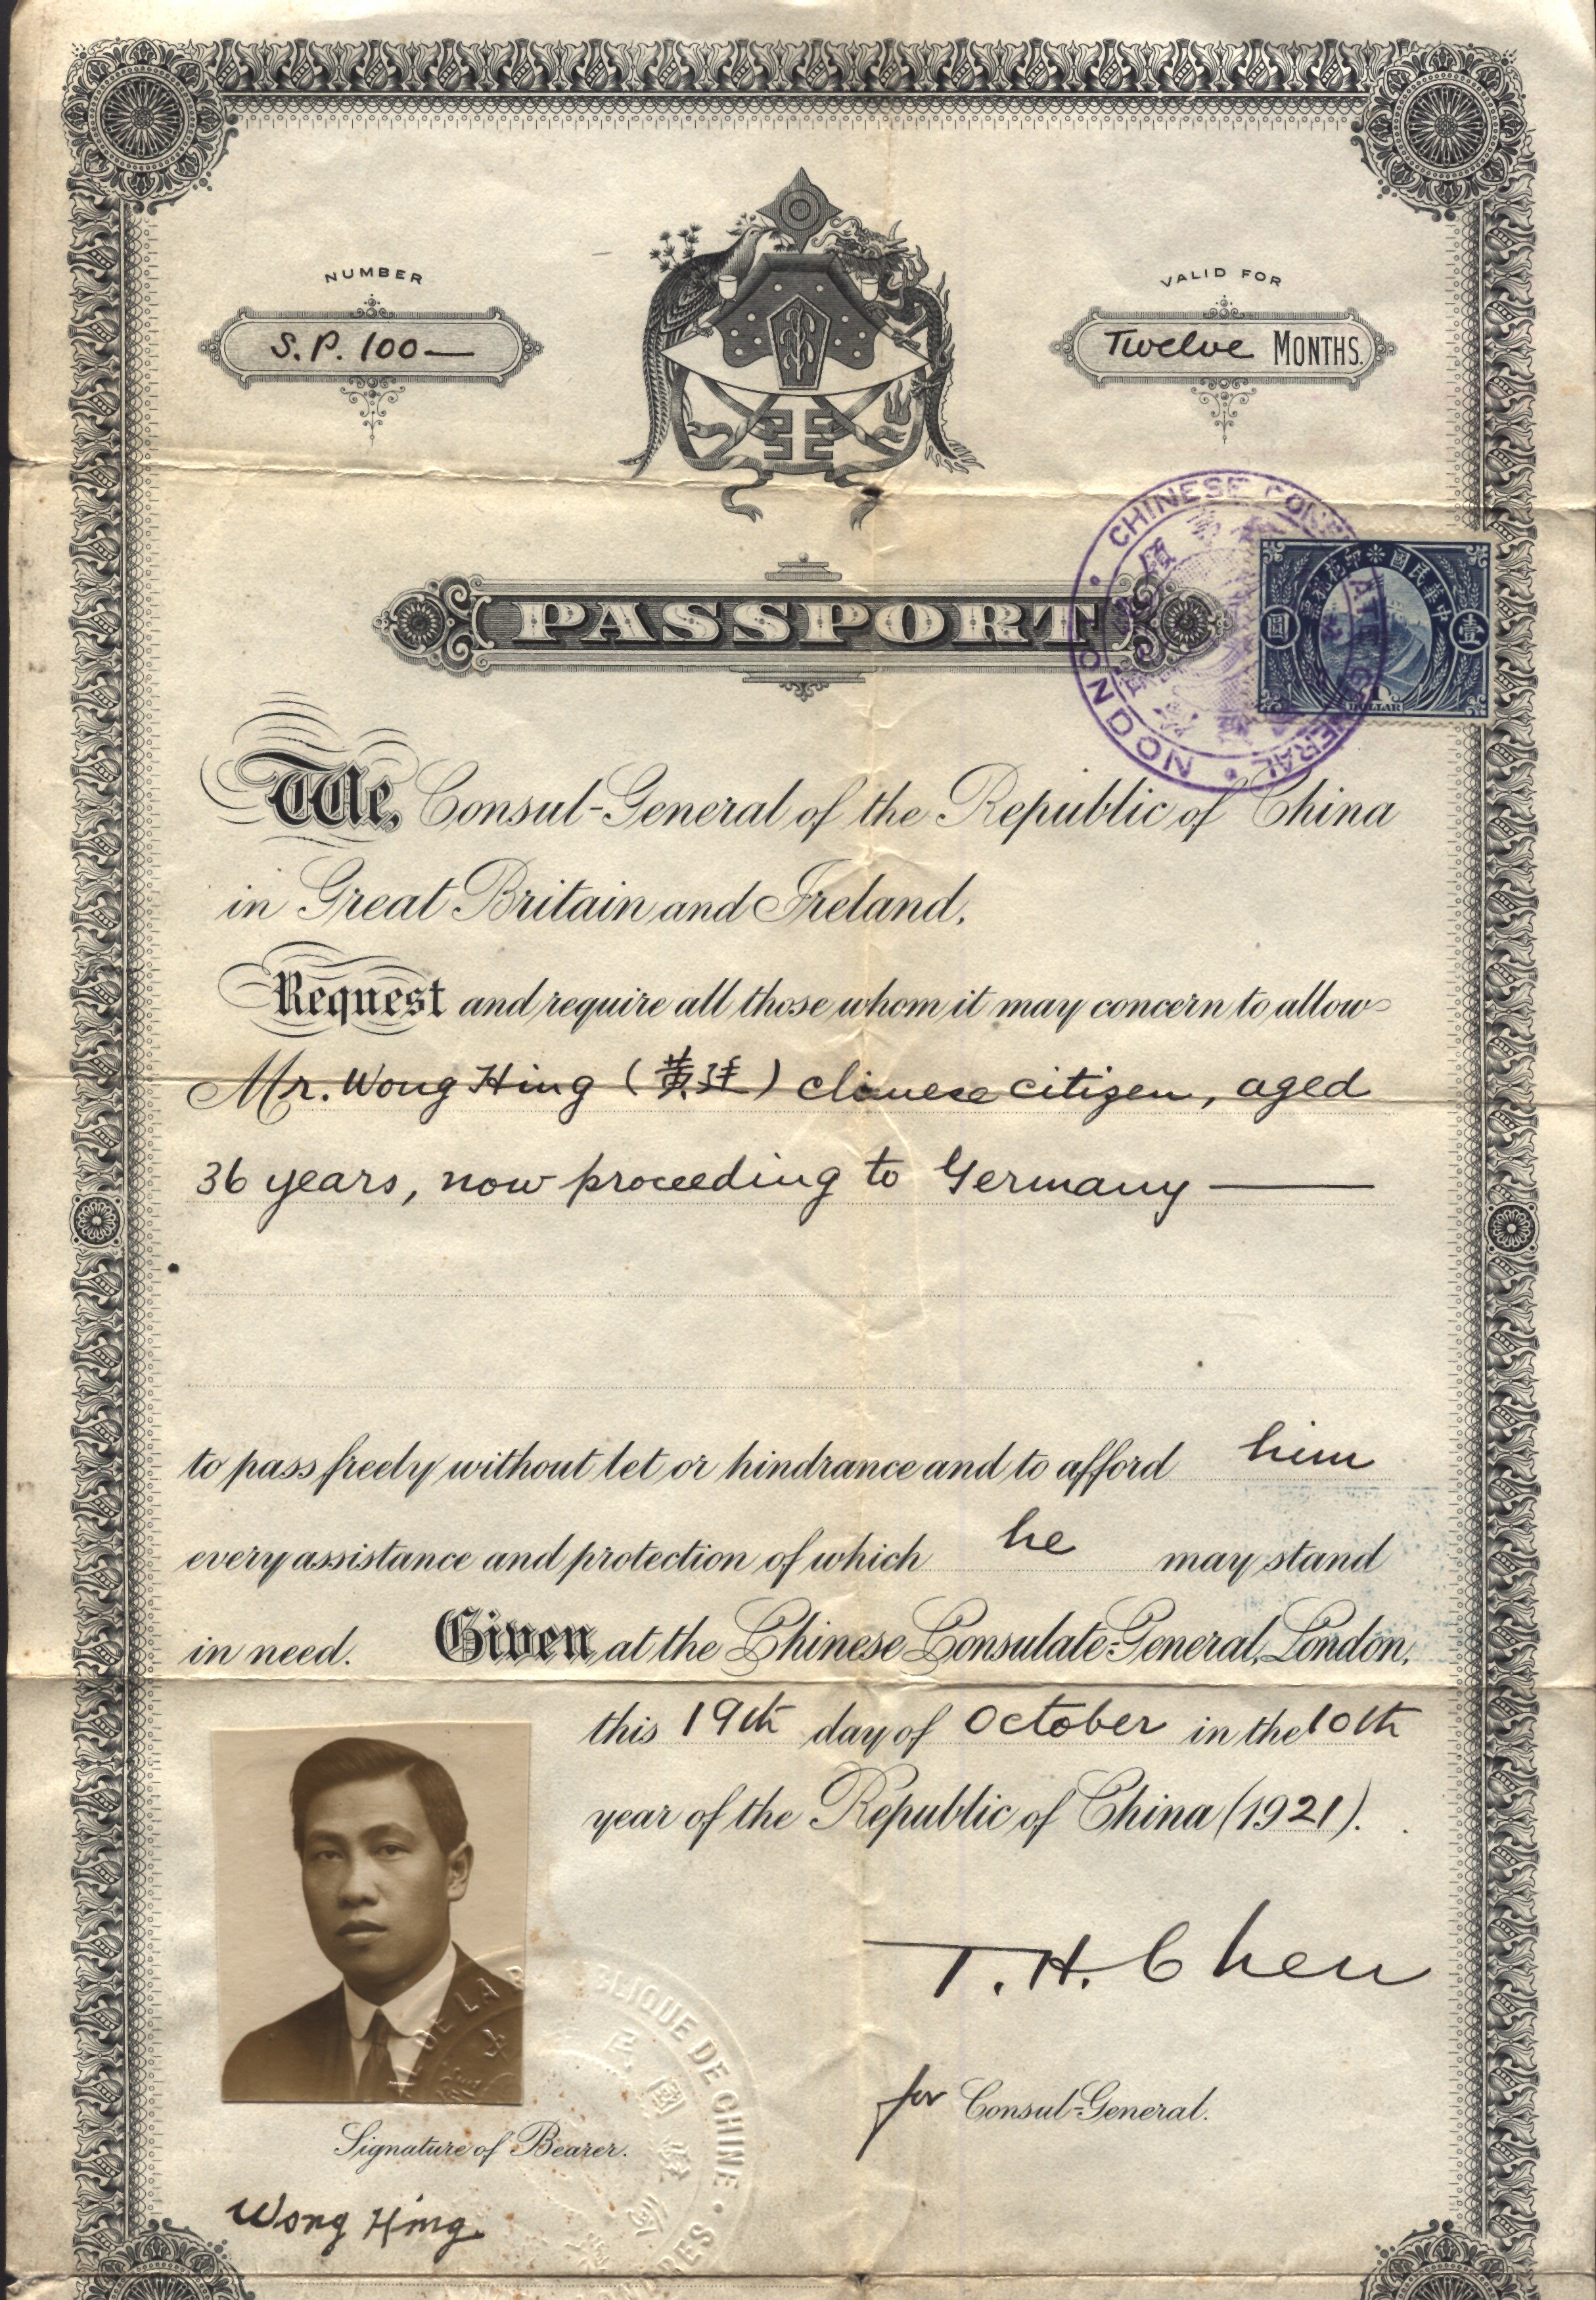 NUMBER
S.P. 100—
VALID FOR
Twelve MONTHS.
CHINESE CONSULATE GENERAL • LONDON •
中華民國印花稅票
壹 圓
1
DOLLAR
PASSPORT
We, Consul-General of the Republic of China
in Great Britain and Ireland,
Request and require all those whom it may concern to allow
Mr. Wong Hing (黃) Chinese citizen, aged
36 years, now proceeding to Germany —
to pass freely without let or hindrance and to afford him
every assistance and protection of which he may stand
in need. Given at the Chinese Consulate-General, London,
this 19th day of October in the 10th
year of the Republic of China (1921).
T. H. Chen
for Consul-General.
DE LA RÉPUBLIQUE DE CHINE •
Signature of Bearer.
Wong Hing